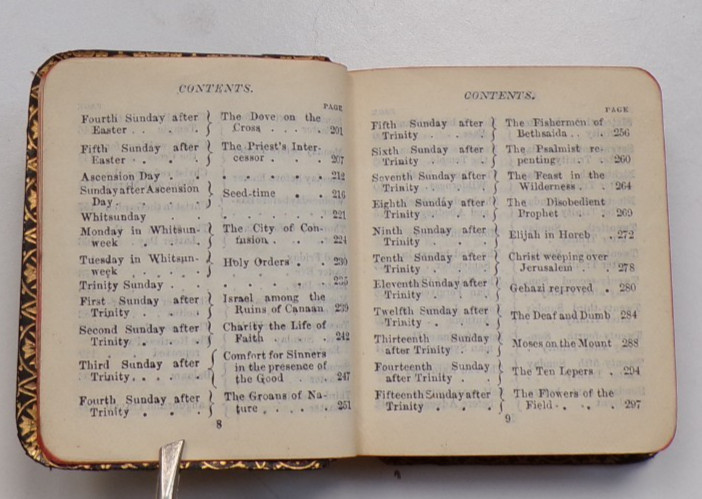 CONTENTS.
PAGE
Fourth Sunday after } The Dove on the
Easter . . } Cross . . . . 201
Fifth Sunday after } The Priest's Inter-
Easter . . . } cessor . . . . 207
Ascension Day . . . . . . 212
Sunday after Ascension } Seed-time . . 216
Day . . . }
Whitsunday . . . . . . 221
Monday in Whitsun- } The City of Con-
week . . . } fusion . . . . 224
Tuesday in Whitsun- } Holy Orders . . 230
week . . . . }
Trinity Sunday . . . . . . 235
First Sunday after } Israel among the
Trinity . . . } Ruins of Canaan 239
Second Sunday after } Charity the Life of
Trinity . . . } Faith . . . . 242
Third Sunday after } Comfort for Sinners
Trinity . . . . } in the presence of
the Good . . . 247
Fourth Sunday after } The Groans of Na-
Trinity . . . } ture . . . . 251
8
CONTENTS.
PAGE
Fifth Sunday after } The Fishermen of
Trinity . . . } Bethsaida . . 256
Sixth Sunday after } The Psalmist re-
Trinity . . . } penting . . . 260
Seventh Sunday after } The Feast in the
Trinity . . . } Wilderness . . 264
Eighth Sunday after } The Disobedient
Trinity . . . } Prophet . . . 269
Ninth Sunday after } Elijah in Horeb . 272
Trinity . . . }
Tenth Sunday after } Christ weeping over
Trinity . . . } Jerusalem . . 278
Eleventh Sunday after } Gehazi reproved . 280
Trinity . . . }
Twelfth Sunday after } The Deaf and Dumb 284
Trinity . . . }
Thirteenth Sunday } Moses on the Mount 288
after Trinity . . }
Fourteenth Sunday } The Ten Lepers . . 294
after Trinity . . }
Fifteenth Sunday after } The Flowers of the
Trinity . . . } Field . . . 297
9